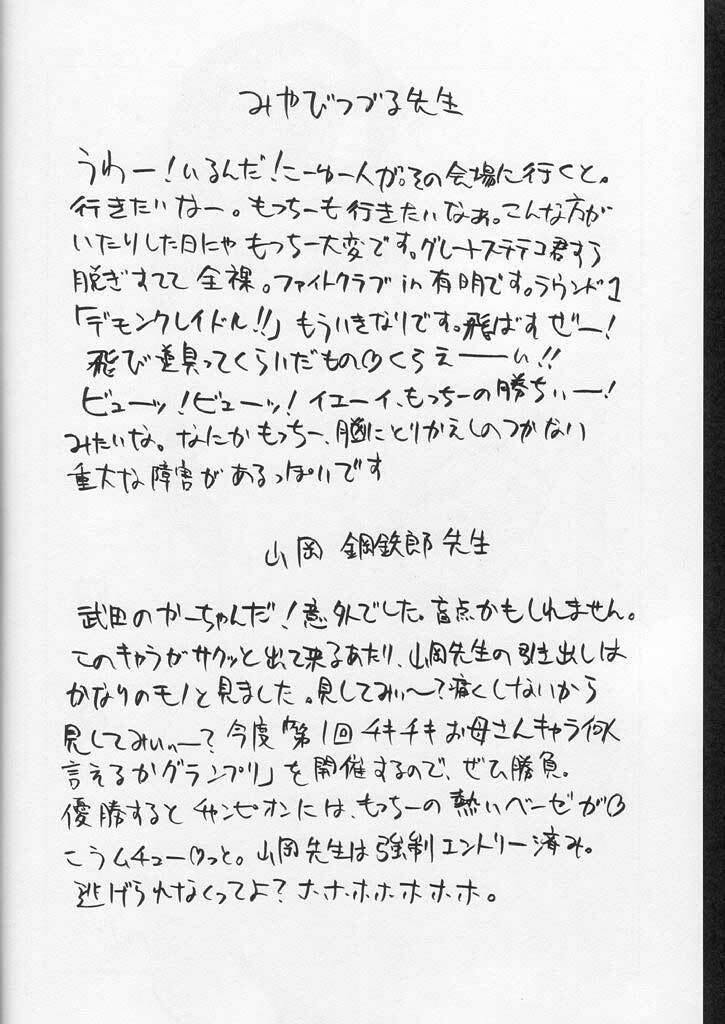 みやびつづる先生
うわー!いるんだ!こーゆー人が。その会場に行くと。
行きたいなー。もっちーも行きたいなぁ。こんな方が
いたりした日にゃもっちー大変です。グレートステテコ君すら
脱ぎすてて全裸。ファイトクラブin有明です。ラウンド1
「デモンクレイドル!!」もういきなりです。飛ばすぜー!
飛び道具ってくらいだもの♡くらえーーい!!
ビューッ!ビューッ!イエーイ、もっちーの勝ちぃー!
みたいな。なにかもっちー、脳にとりかえしのつかない
重大な障害があるっぽいです
山岡鋼鉄郎先生
武田のかーちゃんだ!意外でした。盲点かもしれません。
このキャラがサクッと出て来るあたり、山岡先生の引き出しは
かなりのモノと見ました。見してみぃ〜?痛くしないから
見してみぃぃ〜?今度「第1回チキチキお母さんキャラ何人
言えるかグランプリ」を開催するので、ぜひ勝負。
優勝するとチャンピオンには、もっちーの熱いベーゼが♡
こうムチュー♡っと。山岡先生は強制エントリー済み。
逃げられなくってよ?ホホホホホホホ。